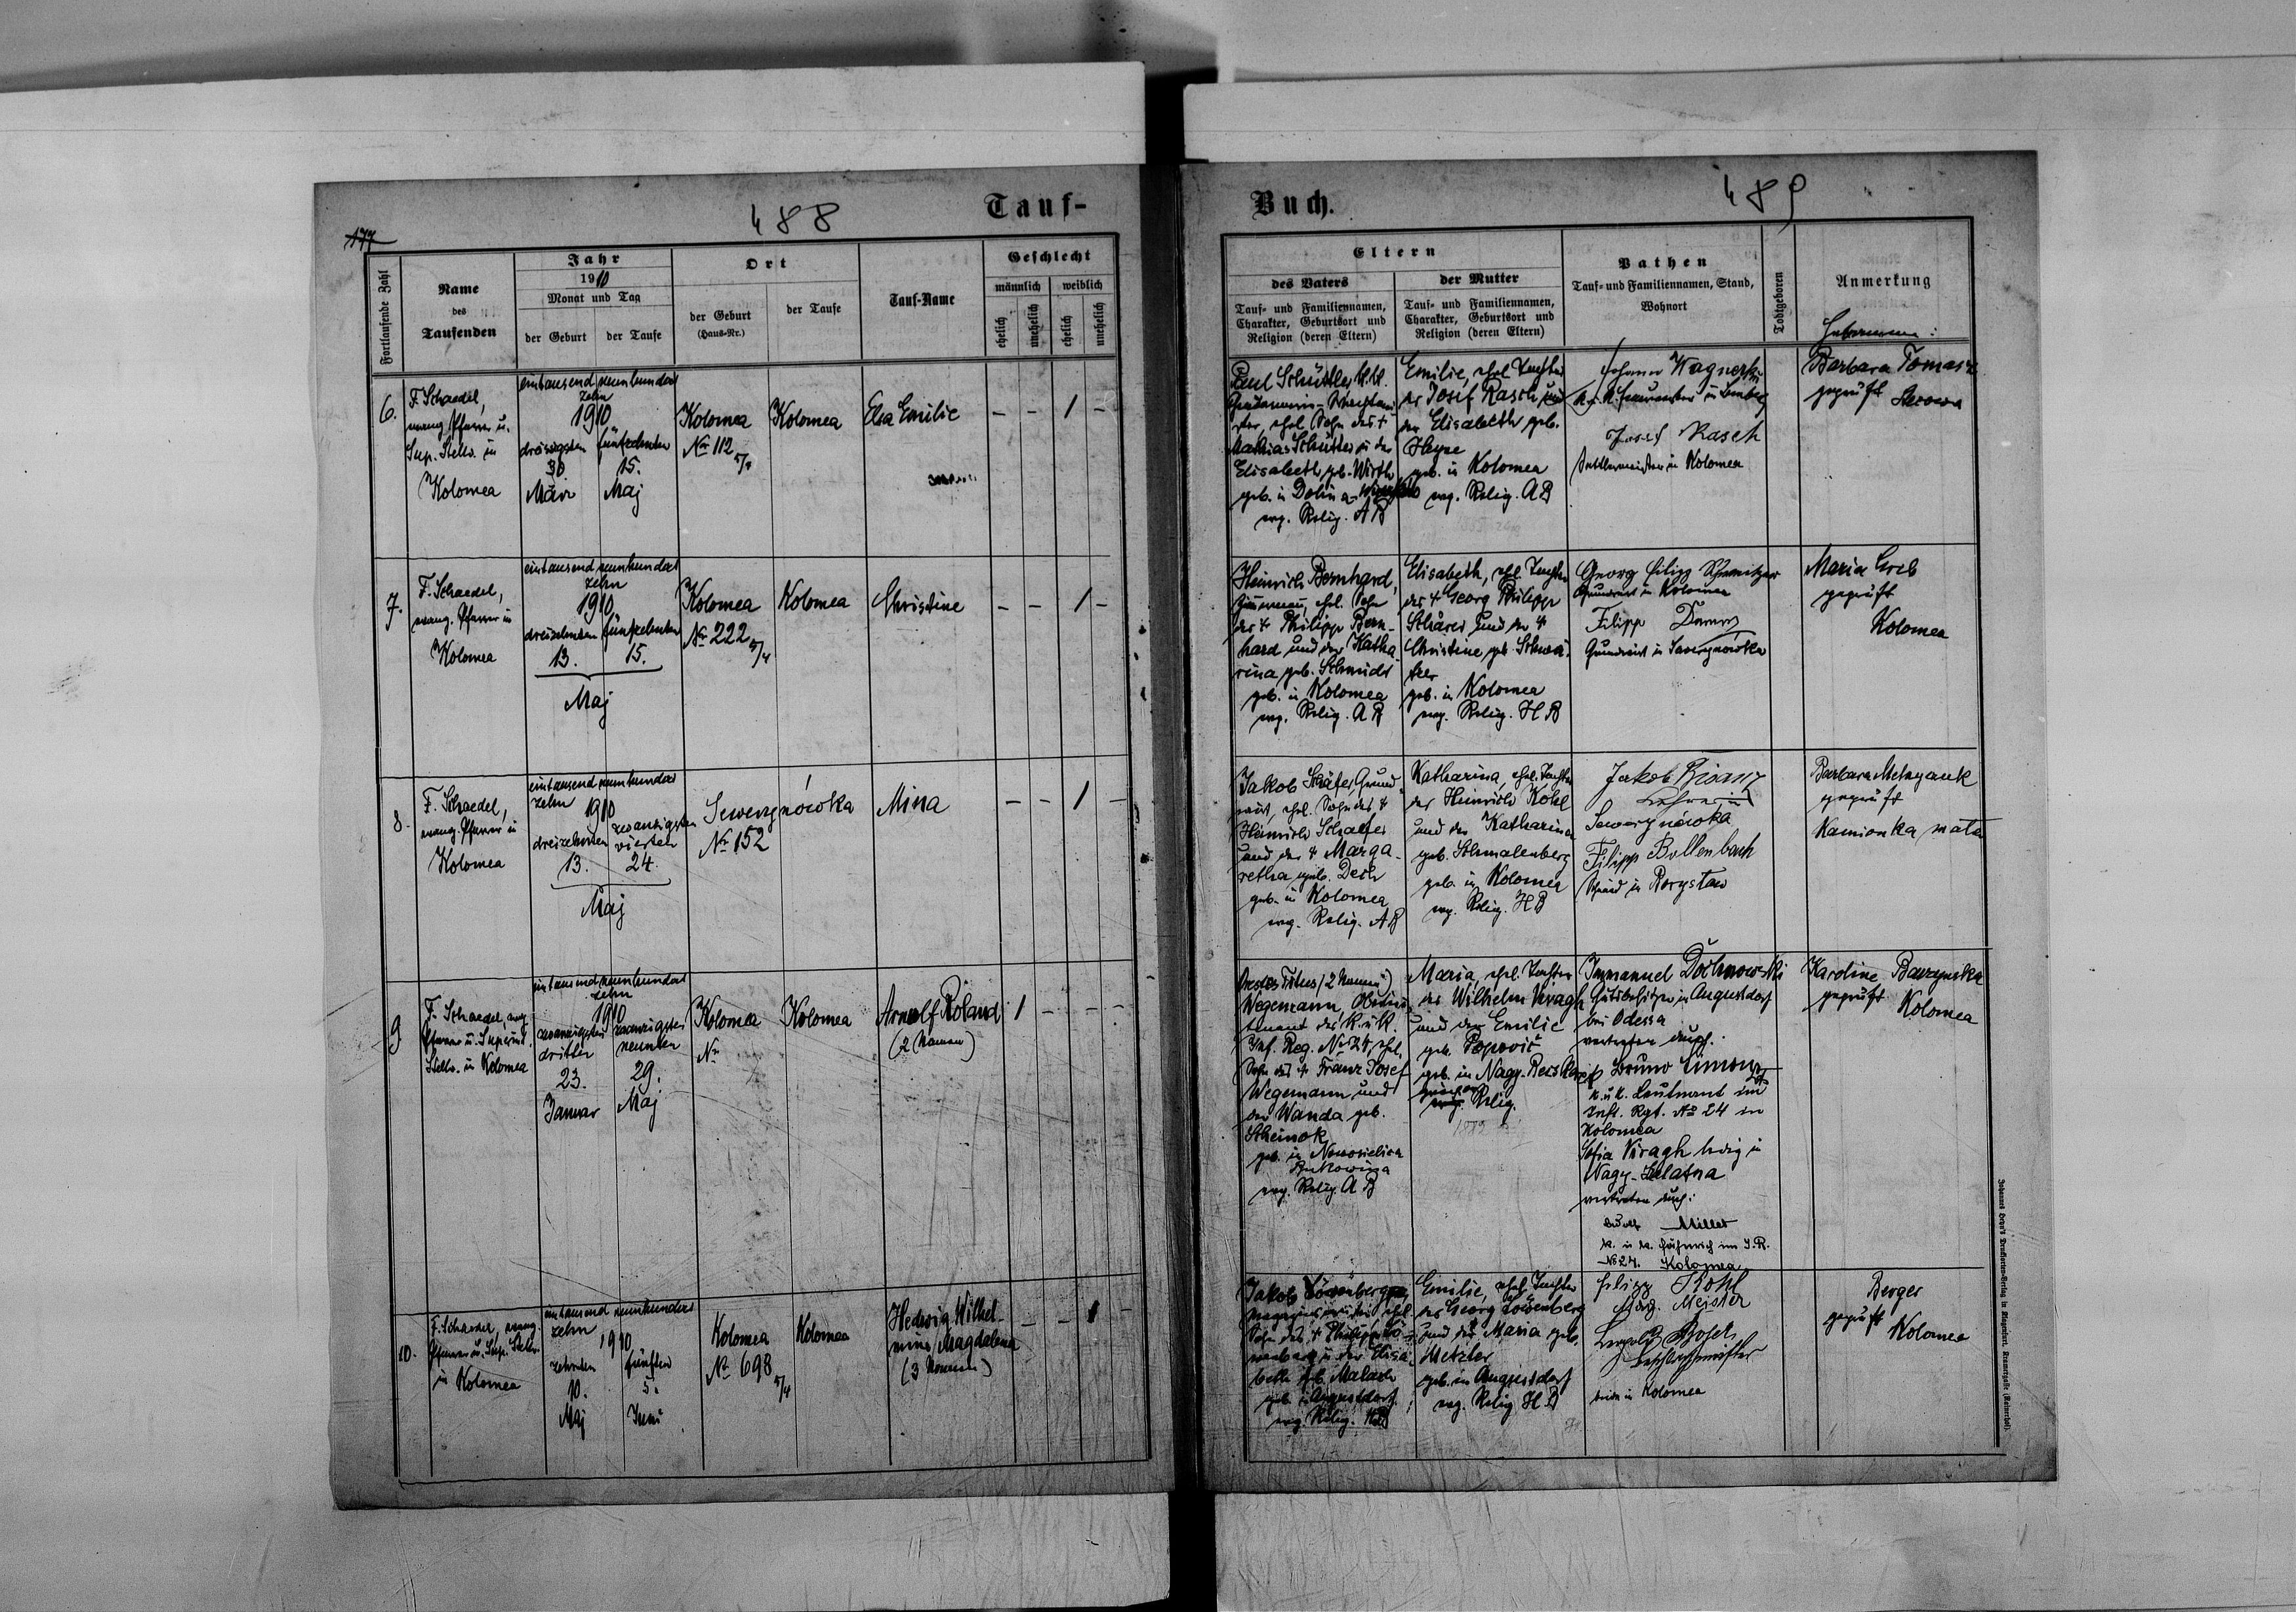 488
Tauf-
177
Fortlaufende Zahl
Name
des
Taufenden
Jahr
1910
Monat und Tag
der Geburt
der Taufe
Ort
der Geburt
(Haus-Nr.)
der Taufe
Tauf-Name
Geschlecht
männlich
weiblich
ehelich
unehelich
ehelich
unehelich
6.
F. Schaedel,
evang. Pfarrer u.
Sup. Stellv. in
Kolomea
eintausend neunhundert
zehn
1910
dreissigsten
30
März
fünfzehnten
15.
Maj
Kolomea
Nr 112
Kolomea
Elsa Emilie
- - 1 -
7.
F. Schaedel,
evang. Pfarrer in
Kolomea
eintausend neunhundert
zehn
1910
dreizehnten fünfzehnten
13. 15.
Maj
Kolomea
Nr 222
Kolomea
Christine
- - 1 -
8.
F. Schaedel,
evang. Pfarrer in
Kolomea
eintausend neunhundert
zehn 1910
dreizehnten
13.
zwanzigsten
vierten
24.
Maj
Sewerynówka
Nr 152
Mina
- - 1 -
9
F. Schaedel, evg.
Pfarrer u. Superint.
Stellv. in Kolomea
eintausend neunhundert
zehn
1910
zwanzigsten
dritten
23.
Januar
zwanzigsten
neunten
29.
Maj
Kolomea
Nr
Kolomea
Arnolf Roland
(2 Namen)
1 - - -
10.
F. Schaedel, evang.
Pfarrer u. Sup. Stellv.
in Kolomea
eintausend neunhundert
zehn
1910
zehnten
10.
Maj
fünften
5.
Juni
Kolomea
Nr 698
Kolomea
Hedwig Wilhel-
mine Magdalena
(3 Namen)
- - 1 -
Buch.
489
Eltern
des Vaters
Tauf- und Familiennamen,
Charakter, Geburtsort und
Religion (deren Eltern)
der Mutter
Tauf- und Familiennamen,
Charakter, Geburtsort und
Religion (deren Eltern)
Pathen
Tauf- und Familiennamen, Stand,
Wohnort
Todtgeboren
Anmerkung
Hebamme:
Paul Schüttler, k.k.
ehel. Sohn des +
Mathias Schüttler u. der
Elisabeth geb. Wirth
geb. in Dolina
evg. Relig. AB
Emilie, ehel. Tochter
des Josef Rasch und
der Elisabeth geb.
Heyse
geb. in Kolomea
evg. Relig. AB
Johann Wagner
Josef Rasch
Sattlermeister in Kolomea
Barbara
geprüft
Heinrich Bernhard,
Zimmermann, ehel. Sohn
des + Philipp Bern-
hard und der Katha-
rina geb. Schmidt
geb. in Kolomea
evg. Relig. AB
Elisabeth, ehel. Tochter
des + Georg Philipp
Schäfer und der +
Christine geb.
geb. in Kolomea
evg. Relig. HB
Georg Filip
Grundwirt in Kolomea
Filipp
Grundwirt in Sewerynówka
Maria Greb
geprüft
Kolomea
Jakob Schäfer, Grund-
wirt, ehel. Sohn des +
Heinrich Schaefer
und der + Marga-
retha geb. Desh
geb. in Kolomea
evg. Relig. AB
Katharina, ehel. Tochter
des Heinrich Kohl
und der Katharina
geb. Schmalenberg
geb. in Kolomea
evg. Relig. HB
Jakob Bisanz
Lehrer in
Sewerynówka
Filipp Bollenbach
Schmied in Borysław
Barbara
geprüft
Kamionka mała
Orestes Titus (2 Namen)
Wegemann, Oberleut-
nant des k. u. k.
Inf. Reg. Nr 24, ehel.
Sohn des + Franz Josef
Wegemann und
der Wanda geb.
geb. in Nowosielica
Bukowina
evg. Relig. AB
Maria, ehel. Tochter
des Wilhelm Viragh
und der Emilie
geb. Popovič
Relig.
Immanuel Dochnowski
Gutsbesitzer in Augustdorf
bei Odessa
vertreten durch:
Bruno
k. u. k. Leutnant im
Inft. Rgt. No 24 in
Kolomea
Sofia Viragh ledig in
Nagy-
vertreten durch:
Miller
k. u. k. Fähnrich im I.R.
No 24. Kolomea
Karoline
geprüft Kolomea
Jakob Löwenberger,
Elisa-
beth geb. Malash
geb. in Augustdorf
evg. Relig. HB
Emilie, ehel. Tochter
des Georg Löwenberg
und der Maria geb.
Metzler
geb. in Augustdorf
evg. Relig. HB
Filipp Kohl
Mag. Meister
Leopold
beide in Kolomea
Berger
geprüft Kolomea